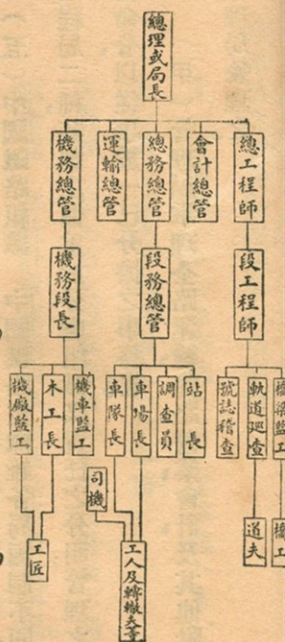 總理或局長
總工程師
會計總管
總務總管
運輸總管
機務總管
段工程師
段務總管
機務段長
橋梁監工
軌道巡查
號誌稽查
站長
調查員
車場長
車隊長
機車監工
木工長
機廠監工
司機
橋工
道夫
工人及轉轍夫等
工匠